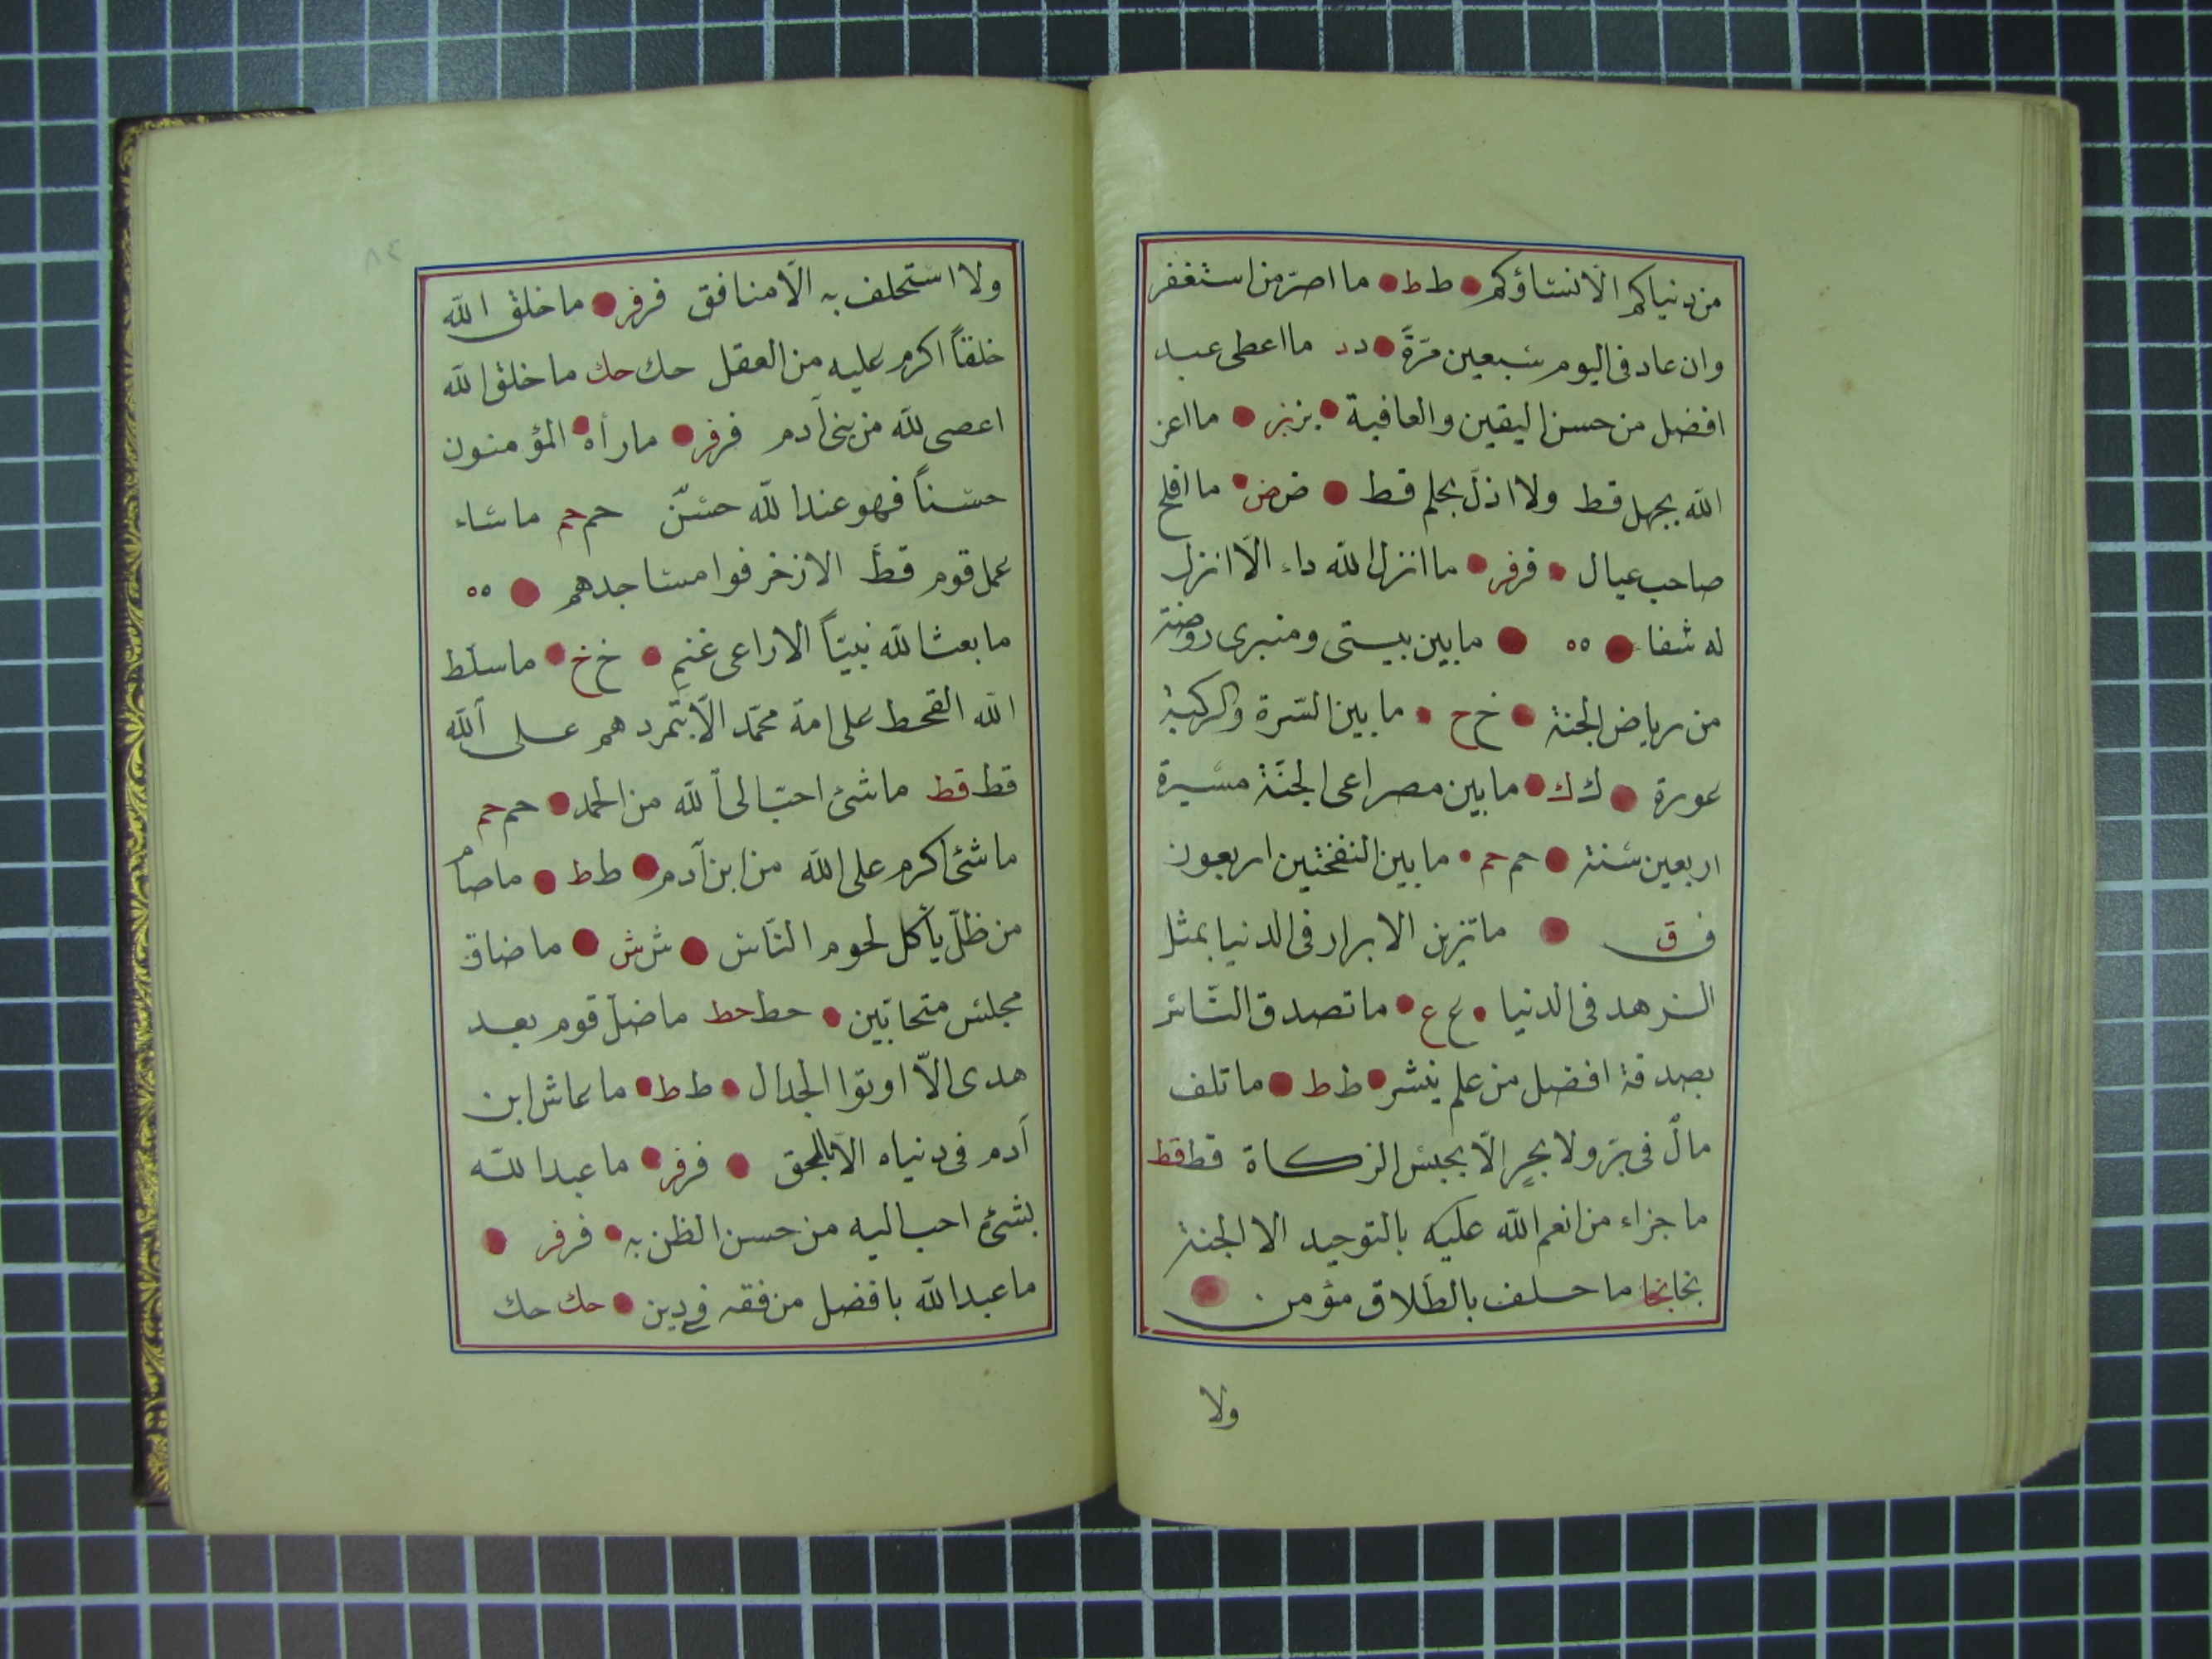 من دنياكم الّا نساؤكم ط ط ما اصرّ من استغفر
وان عاد فى اليوم سبعين مرّةً د د ما اعطى عبد
افضل من حسن اليقين والعافية بز بز ما اعز
الله بجهل قط ولا اذلّ بحلم قط ض ض ما افلح
صاحب عيال فر فر ما انزل الله داء الّا انزل
له شفا ه ه ما بين بيتى ومنبرى روضة
من رياض الجنة خ خ ما بين السّرة والركبة
عورة ك ك ما بين مصراعى الجنّة مسيرة
اربعين سنة حم حم ما بين النفختين اربعون
ق ق ما تزين الابرار فى الدنيا بمثل
الزهد فى الدنيا ع ع ما تصدق النّاس
بصدقة افضل من علم ينشر ط ط ما تلف
مالٌ فى برّ ولا بحرٍ الّا بحبس الزكاة قط قط
ما جزاء من انعم الله عليه بالتوحيد الا الجنة
نجا نجا ما حلف بالطّلاق مؤمن
ولا
٨٤
ولا استحلف به الّا منافق فر فر ما خلق الله
خلقاً اكرم عليه من العقل حك حك ما خلق الله
اعصى لله من بنى آدم فر فر ما رأه المؤمنون
حسناً فهو عند الله حسنٌ حم حم ما ساء
عمل قوم قطّ الا زخرفوا مساجدهم ه ه
ما بعث الله نبيّاً الا راعى غنمٍ خ خ ما سلّط
الله القحط على امة محمّد الّا بتمردهم على الله
قط قط ما شئ احبّ الى الله من الحمد حم حم
ما شئ اكرم على الله من ابن آدم ط ط ما صام
من ظلّ يأكل لحوم النّاس ش ش ما ضاق
مجلس متحابّين حط حط ما ضلّ قوم بعد
هدى الّا اوتوا الجدال ط ط ما عاش ابن
آدم فى دنياه الّا فر فر ما عبد الله
بشئ احب اليه من حسن الظن به فر فر
ما عبد الله بافضل من فقه فى دين حك حك